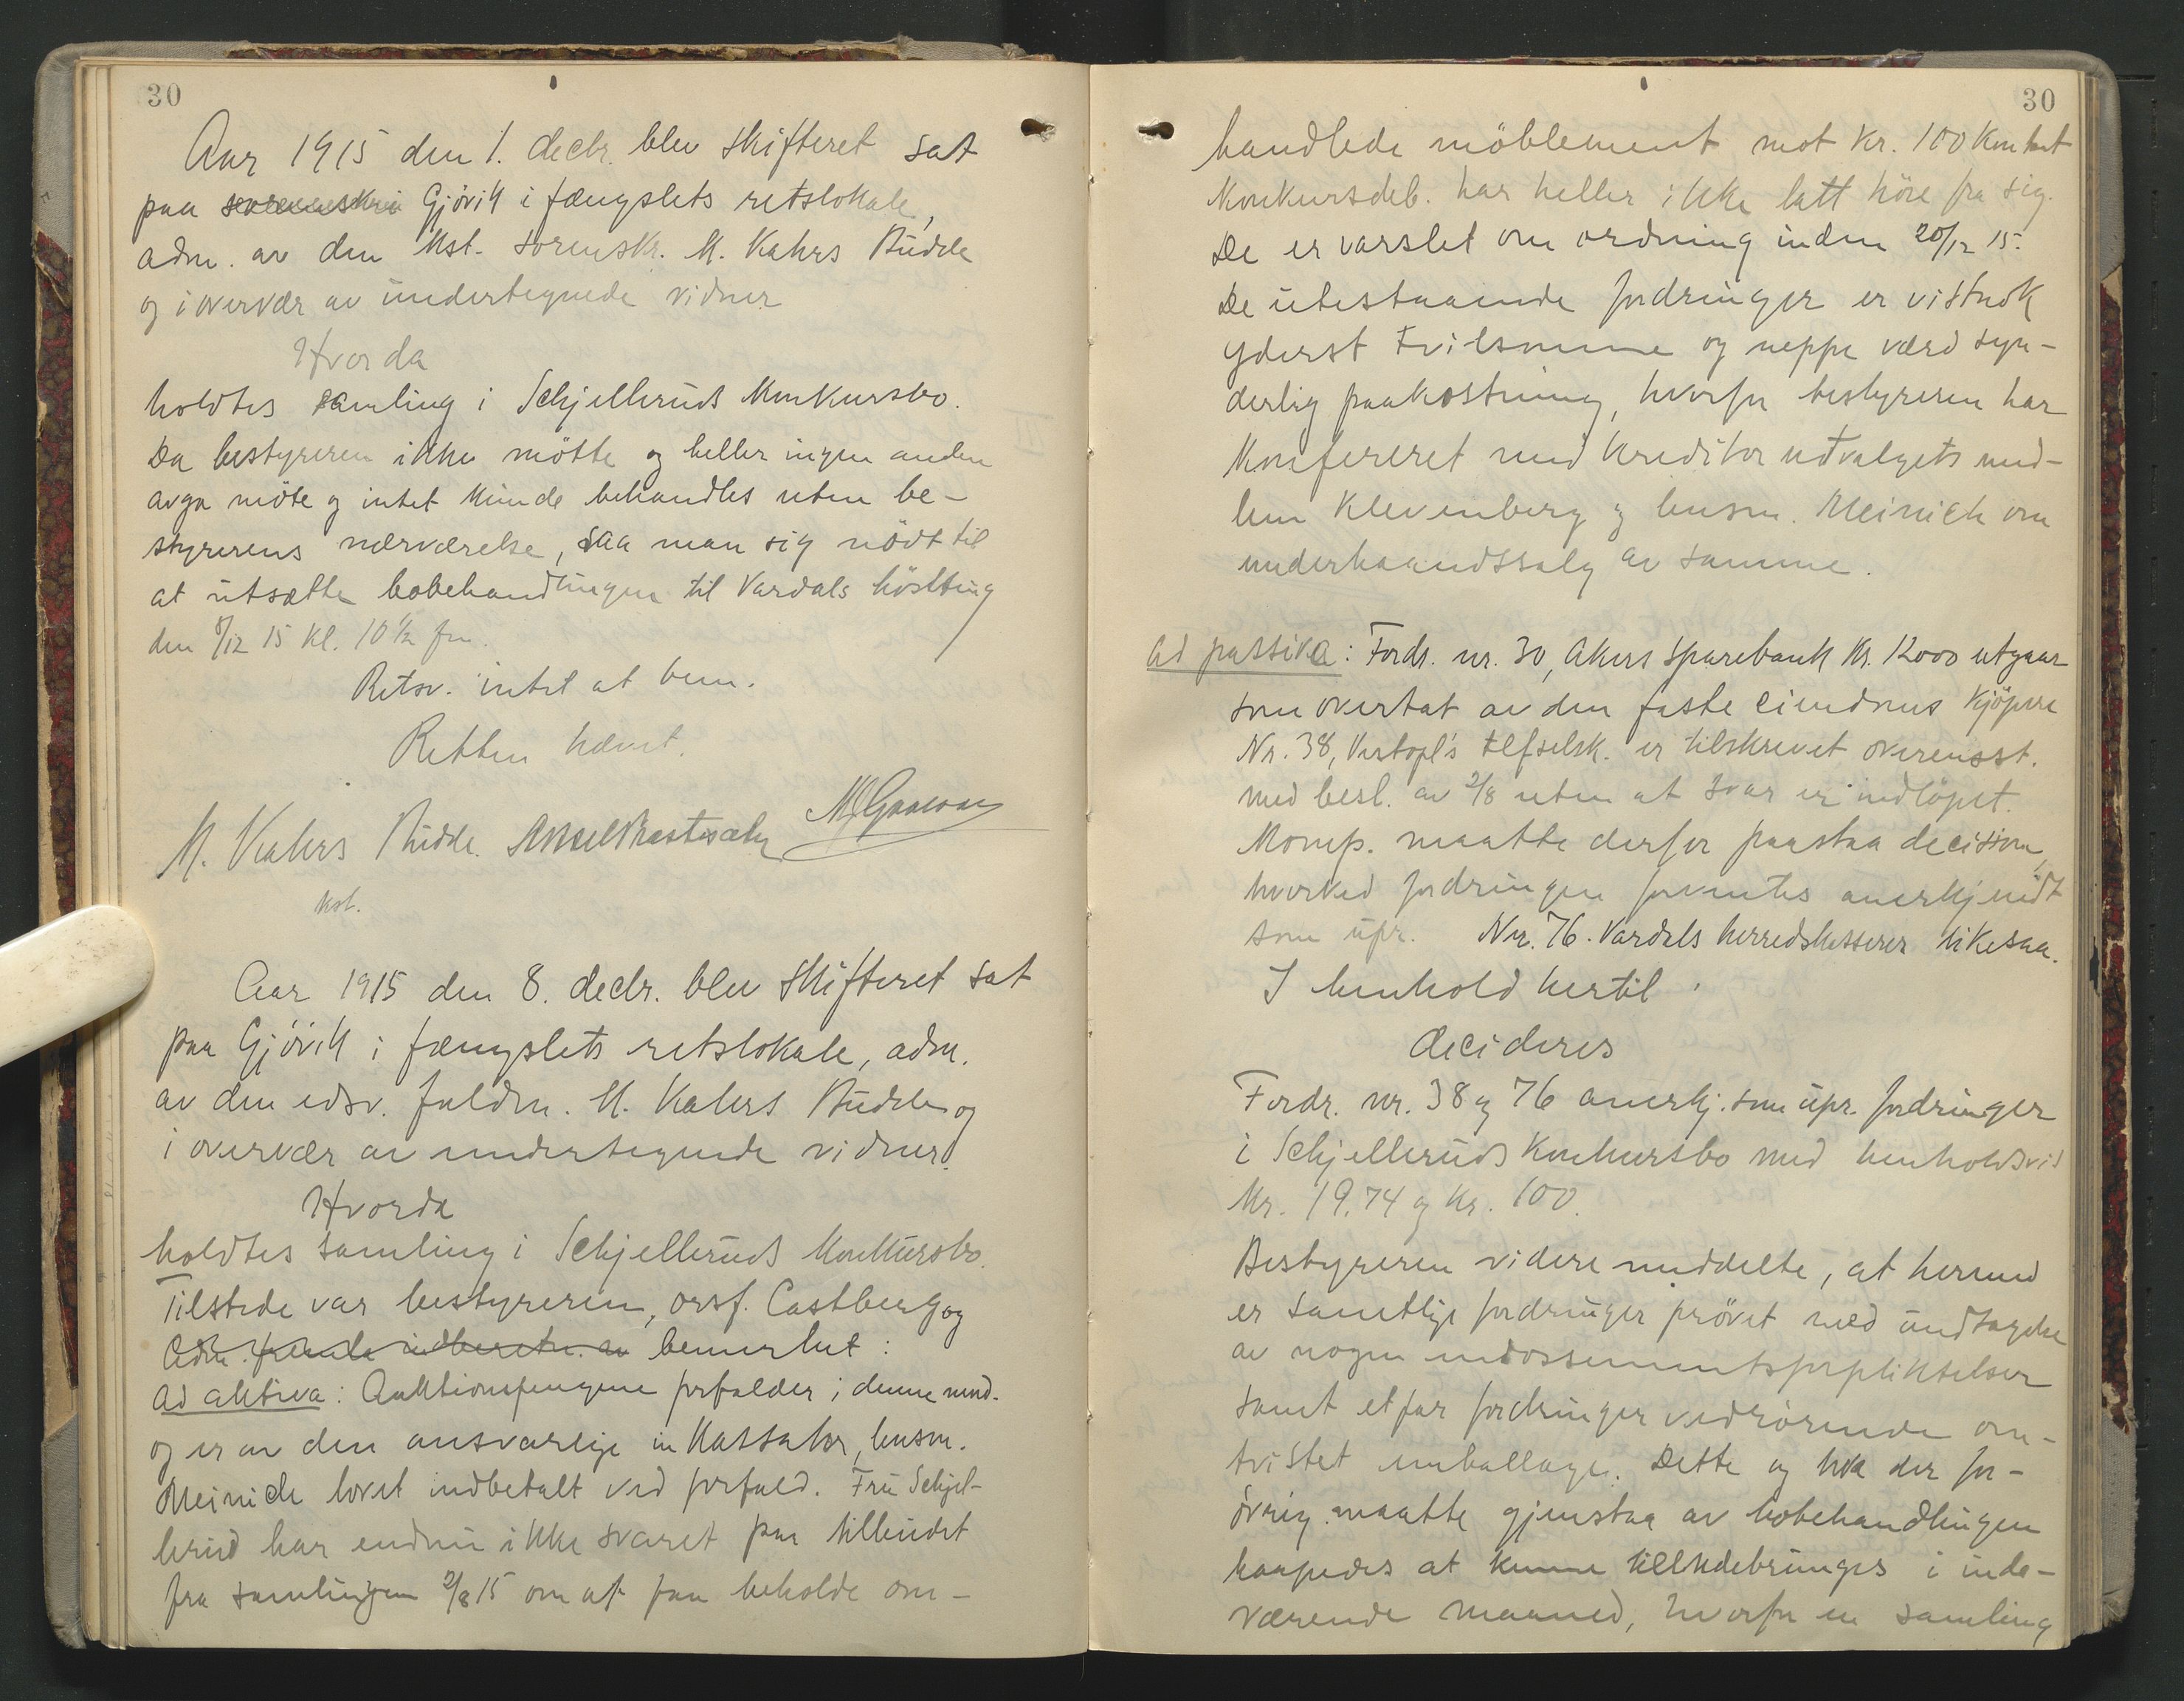 30
Aar 1915 den 1. decbr. blev skifteret sat
paa sorenskri Gjøvik i fængslets retslokale,
adm. av den kst. sorenskr. M. Kahrs Budde
og i overvær av undertegnede vidner
Hvorda
holdtes samling i Schjelleruds konkursbo.
Da bestyreren ikke mötte og heller ingen anden
avga möte og intet kunde behandles uten be-
styrerens nærværelse, saa man sig nödt til
at utsætte bobehandlingen til Vardals höstting
den 8/12 15 kl. 10 1/2 fm.
Retsv. intet at bem.
Retten hævet.
M. Kahrs Budde.
kst.
Aar 1915 den 8. decbr. blev skifteret sat
paa Gjövik i fængslets retslokale, adm.
av den edsv. fuldm. M. Kahrs Budde og
i overvær av undertegnede vidner.
Hvorda
holdtes samling i Schjelleruds konkursbo.
Tilstede var bestyreren, orsf. Castberg og
bemerket:
ad aktiva: Auktionspengene forfalder i denne mnd.
og er av den ansvarlige inkassator, lensm.
Meinich lovet indbetalt ved forfald. Fru Schjel-
lerud har endnu ikke svaret paa tilbudet
fra samlingen 2/8 15 om at faa beholde om-
30
handlede möblement mot kr. 100 kontant
Konkursdeb. har heller ikke latt höre fra sig.
De er varslet om ordning inden 20/12 15.
De utestaaende fordringer er vistnok
yderst tvilsomme og neppe værd syn-
derlig paakostning, hvorfor bestyreren har
konfereret med kreditorutvalgets med-
lem Klevenberg og lensm. Meinich om
underhaandssalg av samme.
ad passiva: Fordr. nr. 30, Akers Sparebank kr. 12000 utgaar
som overtat av den faste eiendoms kjöper
Nr. 38, Vestopl's tlfselsk. er tilskrevet overensst.
med besl. av 2/8 uten at svar er indlöpet.
Komp. maatte derfor paastaa decision,
hvorved fordringen forventes anerkjendt
som upr. Nr. 76. Vardals herredskasserer likesaa.
I henhold hertil
decideres
Fordr. nr. 38 og 76 anerkj. som upr. fordringer
i Schjelleruds konkursbo med henholdsvis
kr. 19.74 og kr. 100.
Bestyreren videre meddelte, at hermed
er samtlige fordringer prövet med undtagelse
av nogen endossementsforpliktelser
samt et par fordringer vedrörende om-
tvistet emballage. Dette og hva der for-
övrig maatte gjenstaa av bobehandlingen
haapedes at kunne tilendebringes i inde-
værende maaned, hvorfor en samling